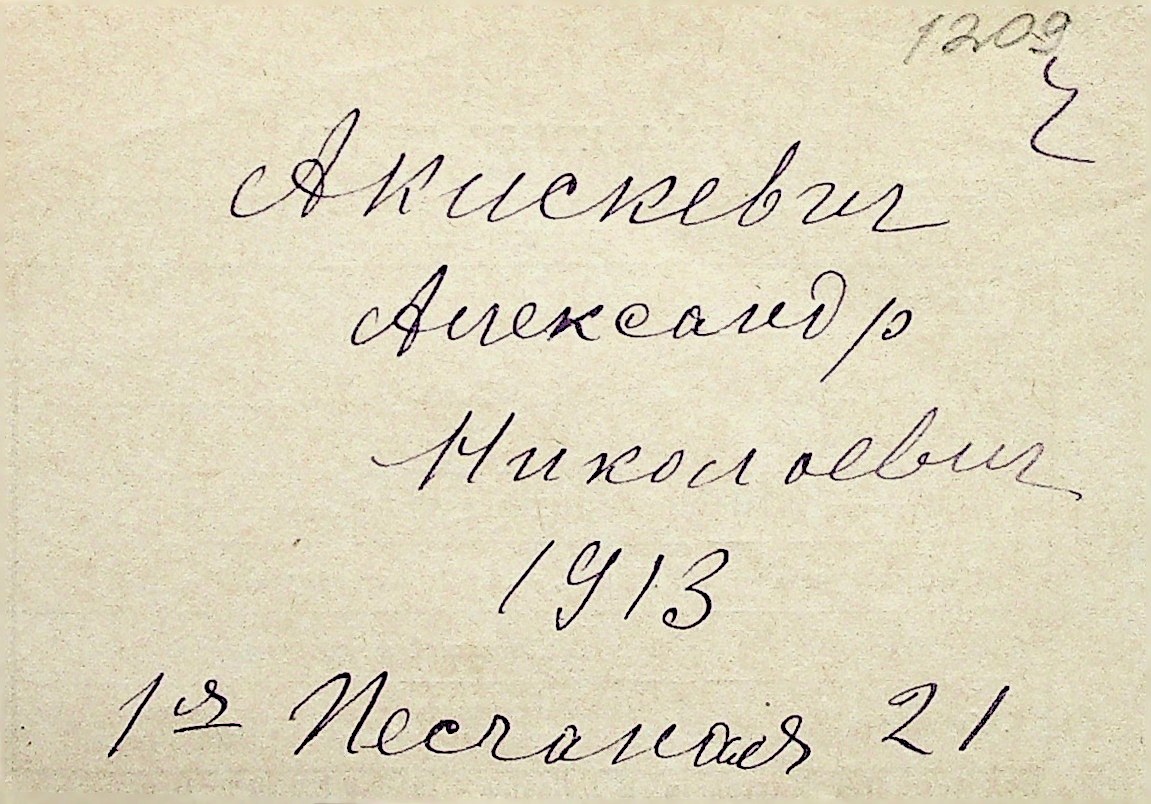 1209
Акискевич
Александр
Николаевич
1913
1я Песчаная 21